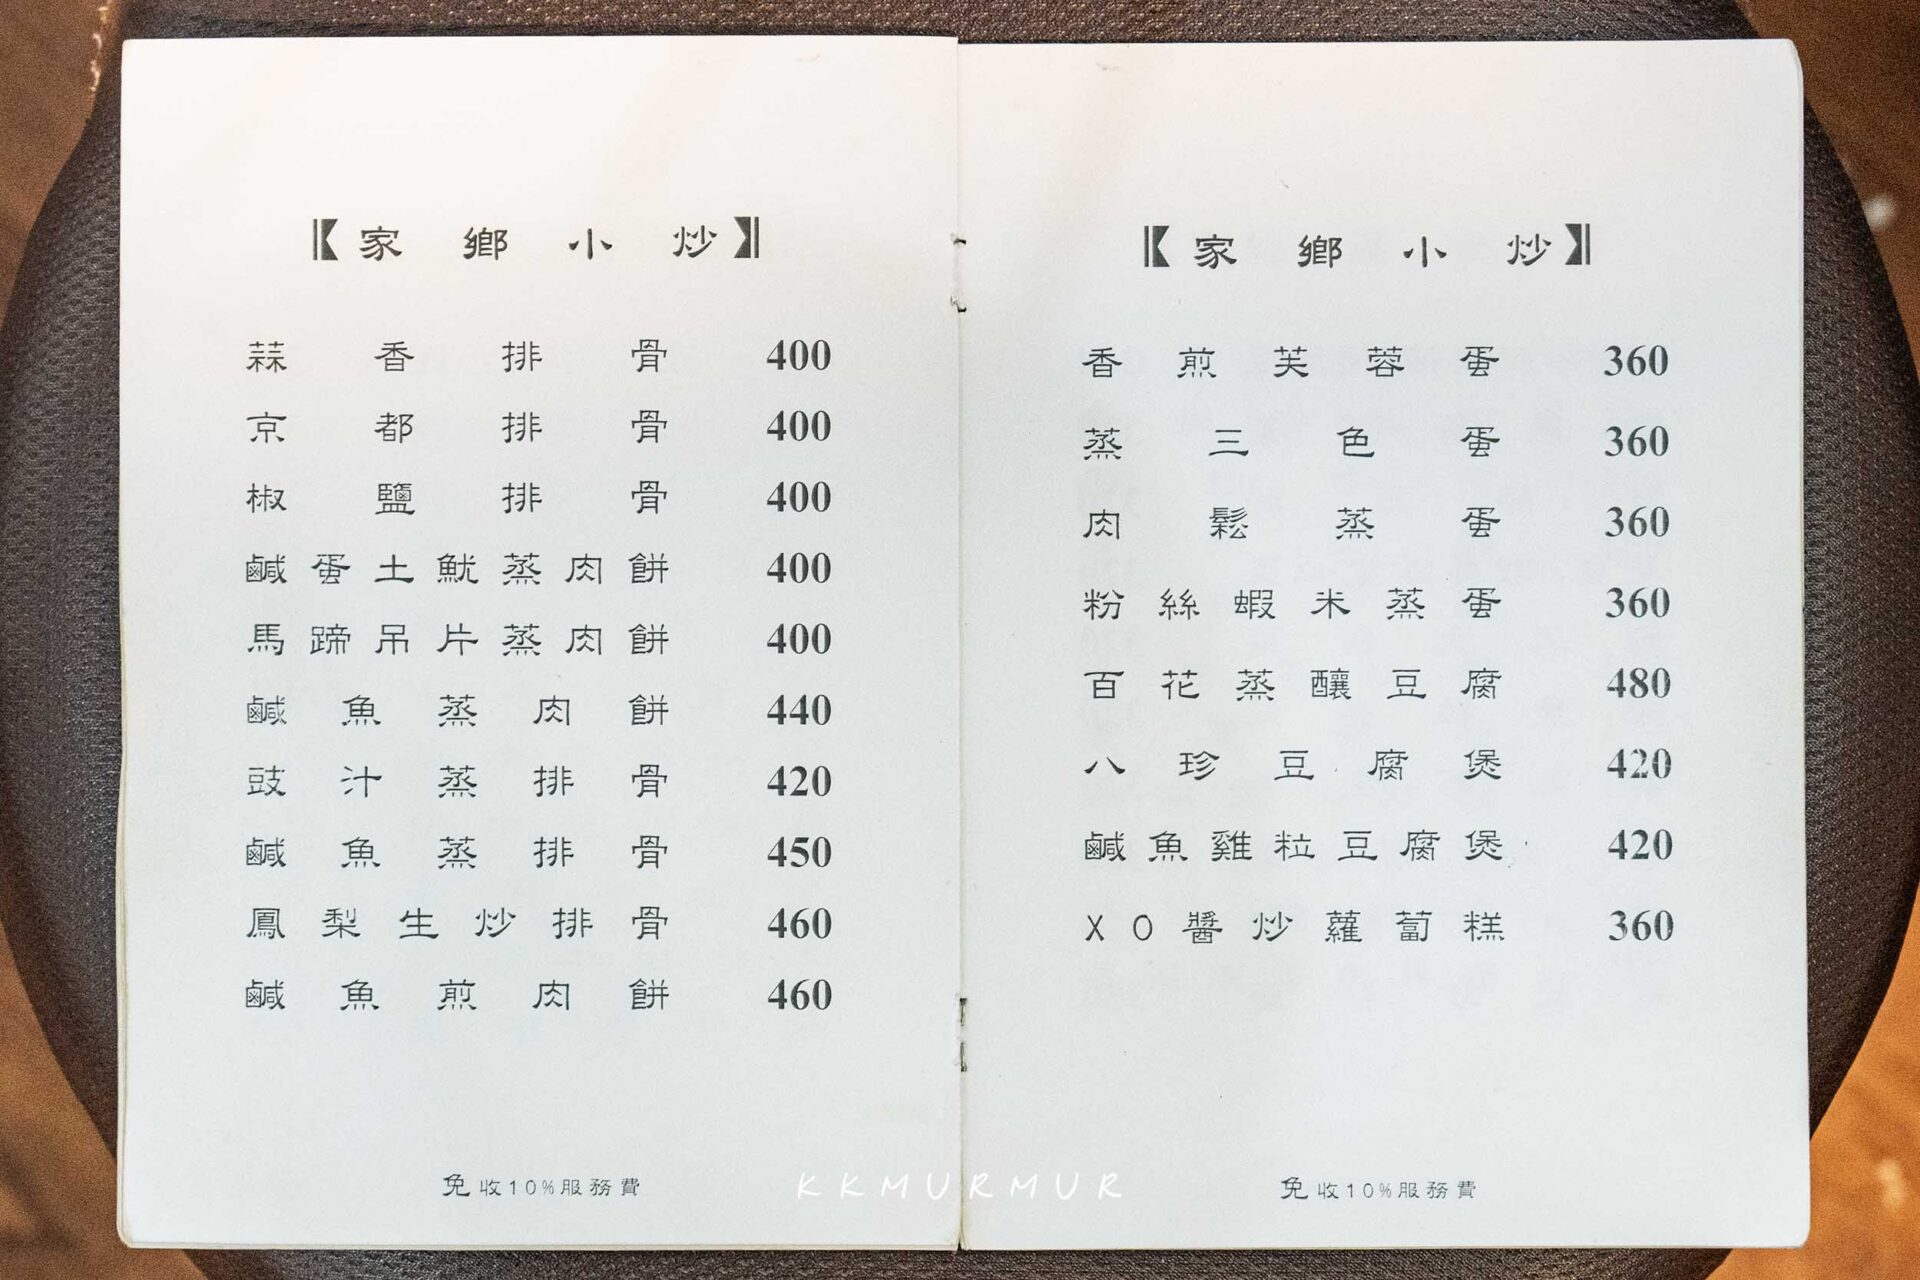 【家鄉小炒】
蒜香排骨 400
京都排骨 400
椒鹽排骨 400
鹹蛋土魷蒸肉餅 400
馬蹄吊片蒸肉餅 400
鹹魚蒸肉餅 440
豉汁蒸排骨 420
鹹魚蒸排骨 450
鳳梨生炒排骨 460
鹹魚煎肉餅 460
免收10%服務費
【家鄉小炒】
香煎芙蓉蛋 360
蒸三色蛋 360
肉鬆蒸蛋 360
粉絲蝦米蒸蛋 360
百花蒸釀豆腐 480
八珍豆腐煲 420
鹹魚雞粒豆腐煲 420
XO醬炒蘿蔔糕 360
免收10%服務費
KKMURMUR